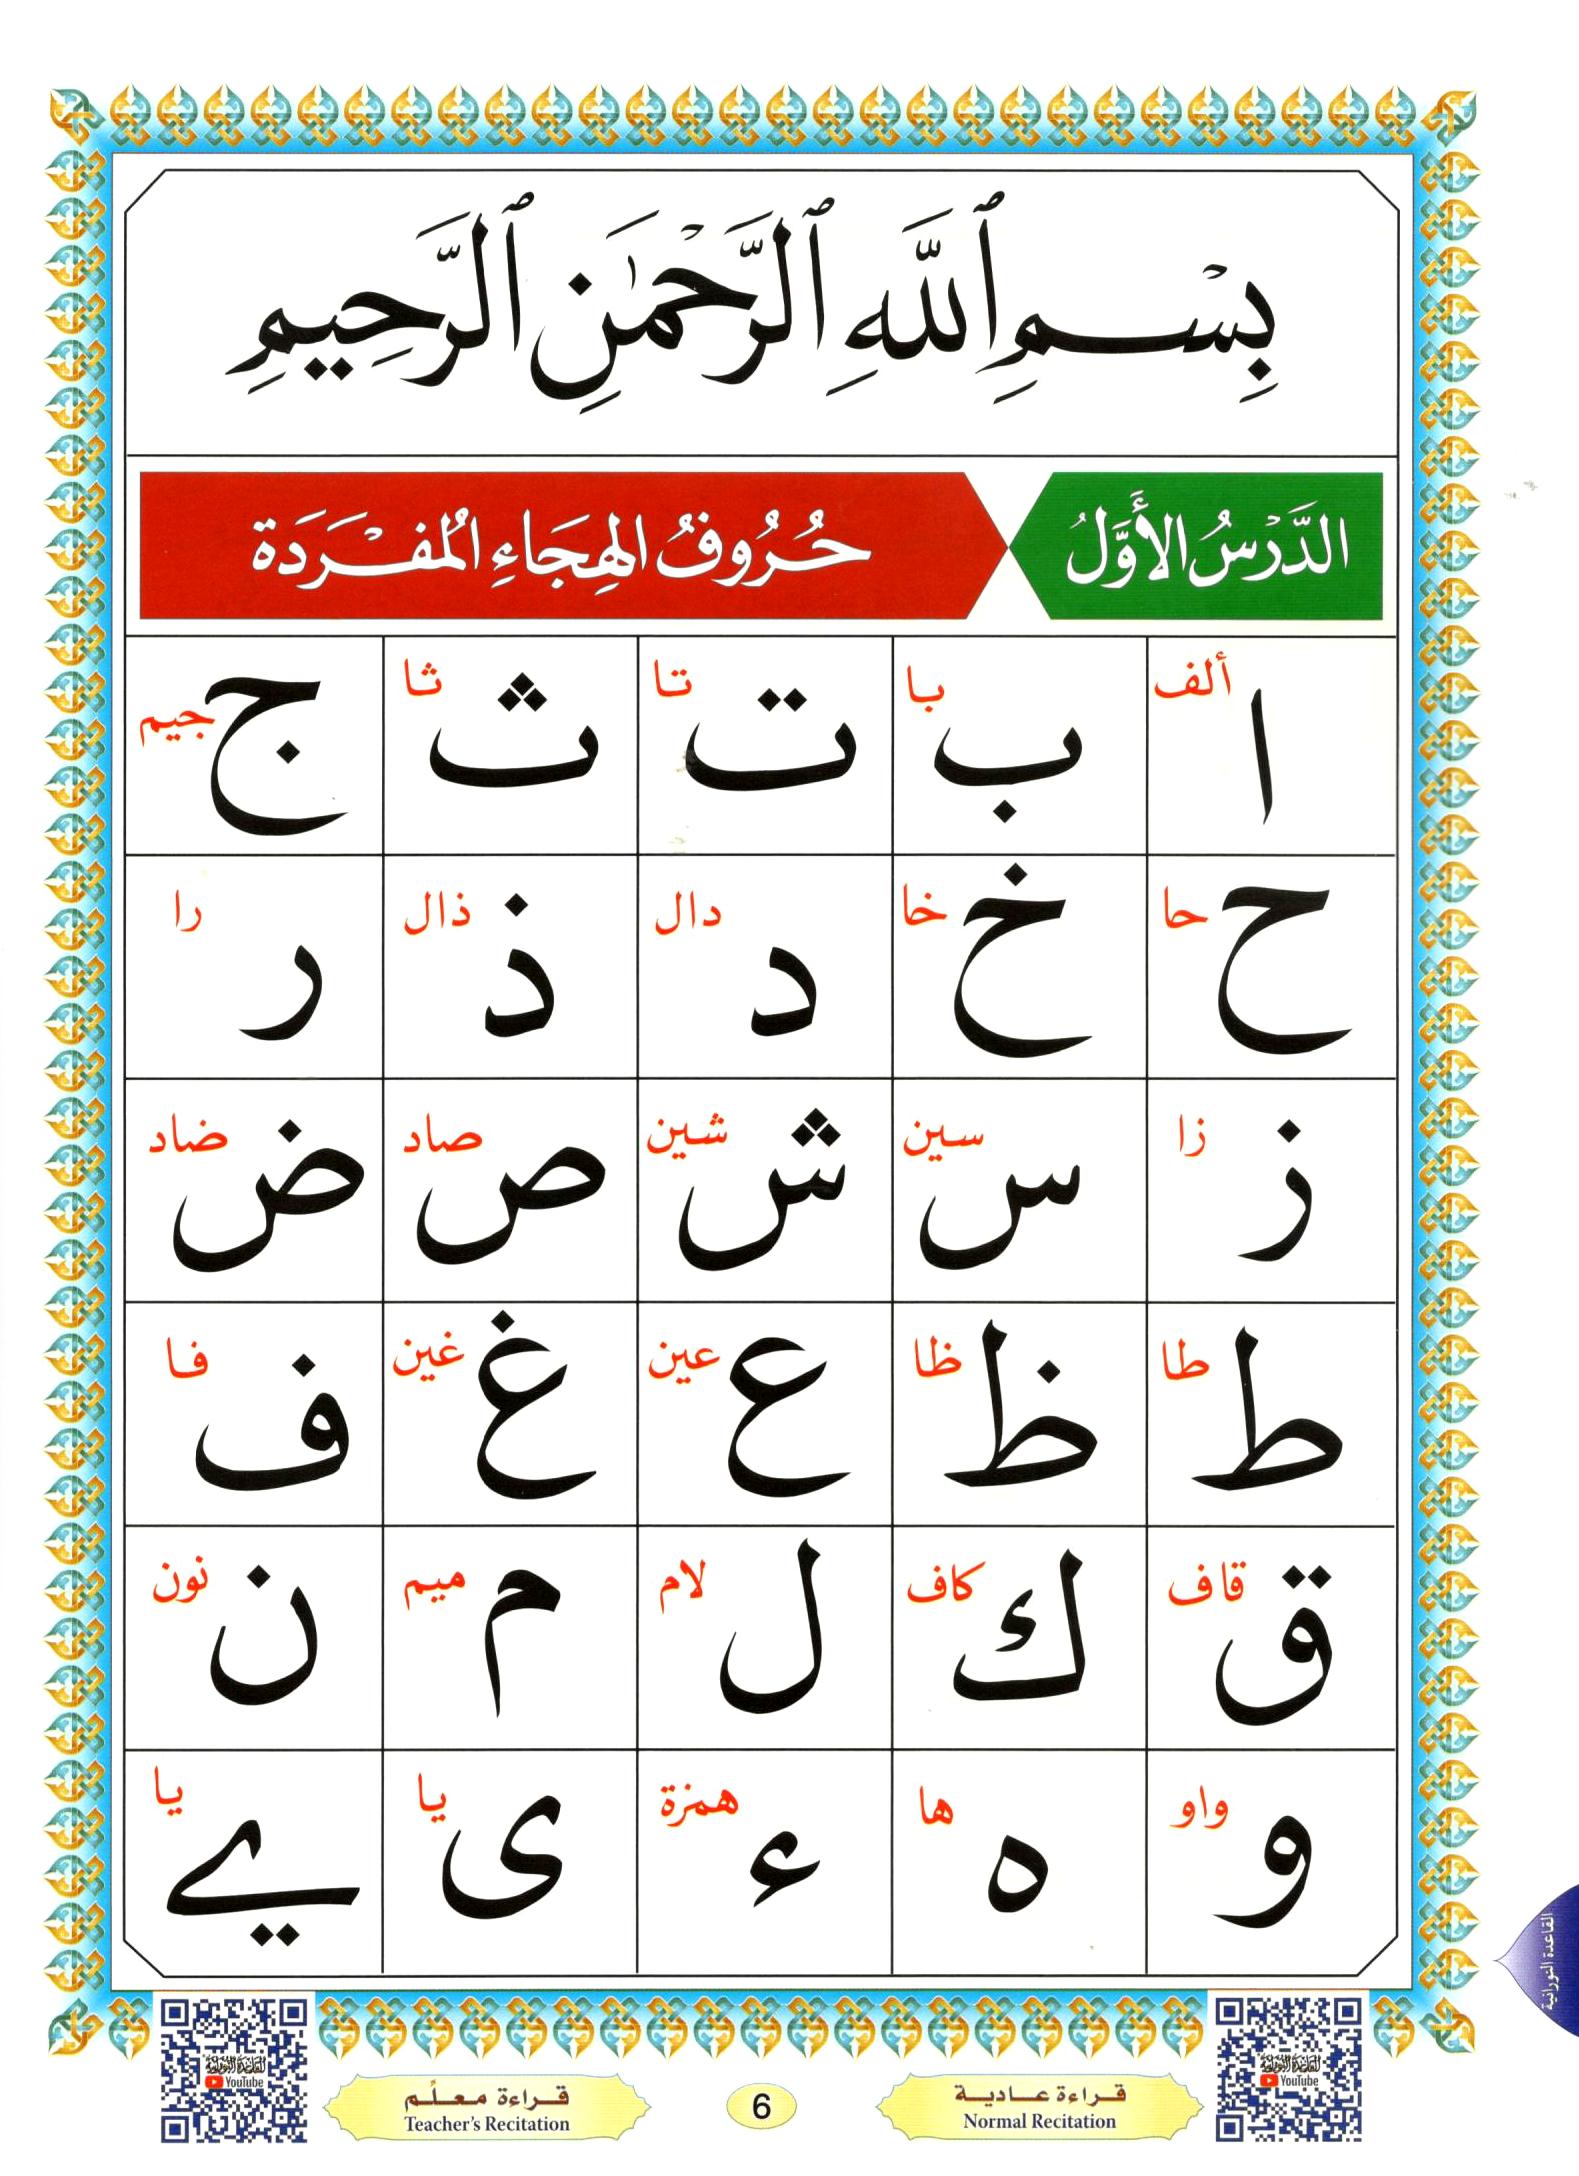 بِسْمِ ٱللَّهِ ٱلرَّحْمَٰنِ ٱلرَّحِيمِ
الدَّرْسُ الْأَوَّلُ
حُرُوفُ الْهِجَاءِ الْمُفْرَدَةِ
ا ألف ب با ت تا ث ثا ج جيم
ح حا خ خا د دال ذ ذال ر را
ز زا س سين ش شين ص صاد ض ضاد
ط طا ظ ظا ع عين غ غين ف فا
ق قاف ك كاف ل لام م ميم ن نون
و واو ه ها ء همزة ى يا ے يا
القاعدة النورانية
القاعدة النورانية
YouTube
القاعدة النورانية
YouTube
قراءة عادية
Normal Recitation
6
قراءة معلّم
Teacher's Recitation